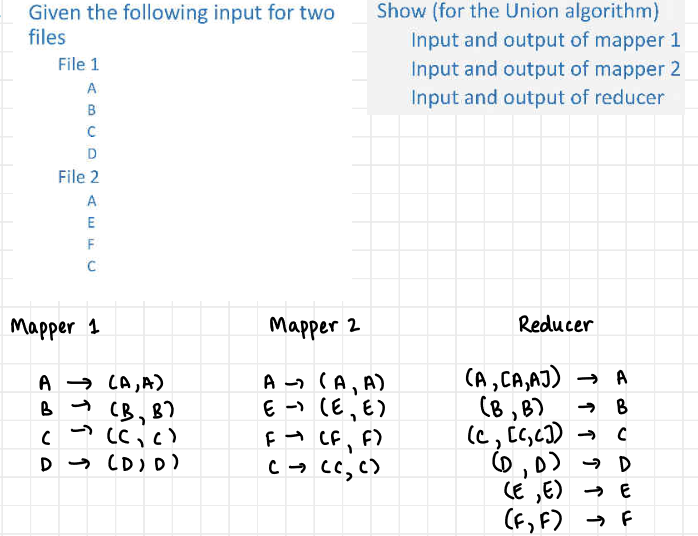 Given the following input for two
files
File 1
A
B
C
D
File 2
A
E
F
C
Show (for the Union algorithm)
Input and output of mapper 1
Input and output of mapper 2
Input and output of reducer
Mapper 1
A → (A,A)
B → (B, B)
C → (C, C)
D → (D, D)
Mapper 2
A → (A, A)
E → (E, E)
F → (F, F)
C → (C, C)
Reducer
(A, [A,A]) → A
(B, B) → B
(C, [C,C]) → C
(D, D) → D
(E, E) → E
(F, F) → F